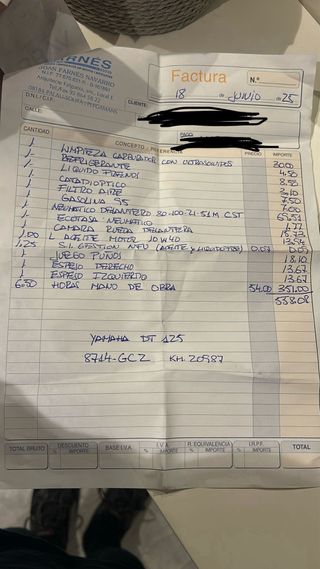 FARNÉS
JOAN FARNÉS NAVARRO
Factura N.º
18 de JUNIO de 25
CLIENTE:
D.N.I./C.I.F.
CALLE:
PAGO:
CANTIDAD CONCEPTO - REFERENCIA PRECIO IMPORTE
1 LIMPIEZA CARBURADOR CON ULTRASONIDOS 30.00
1 REFRIGERANTE 4.50
1 LIQUIDO FRENOS 8.50
1 CATADIOPTICO
1 FILTRO AIRE 7.50
1 GASOLINA 95 7.00
1 NEUMATICO DELANTERO 80-100-21-51M CST
1 ECOTASA NEUMATICO
1 CAMARA RUEDA DELANTERA
1.00 L ACEITE MOTOR 10W40
1.25 S.I. GESTION NFU (ACEITE y LIQUIDOTOR) 0.07
1 JUEGO PUÑOS 18.10
1 ESPEJO DERECHO 13.67
1 ESPEJO IZQUIERDO 13.67
6.50 HORAS MANO DE OBRA 54.00 351.00
558.08
YAMAHA DT 125
8714-GCZ KM. 20987
TOTAL BRUTO DESCUENTO % IMPORTE BASE I.V.A. I.V.A. % IMPORTE R. EQUIVALENCIA % IMPORTE I.R.P.F. % IMPORTE TOTAL